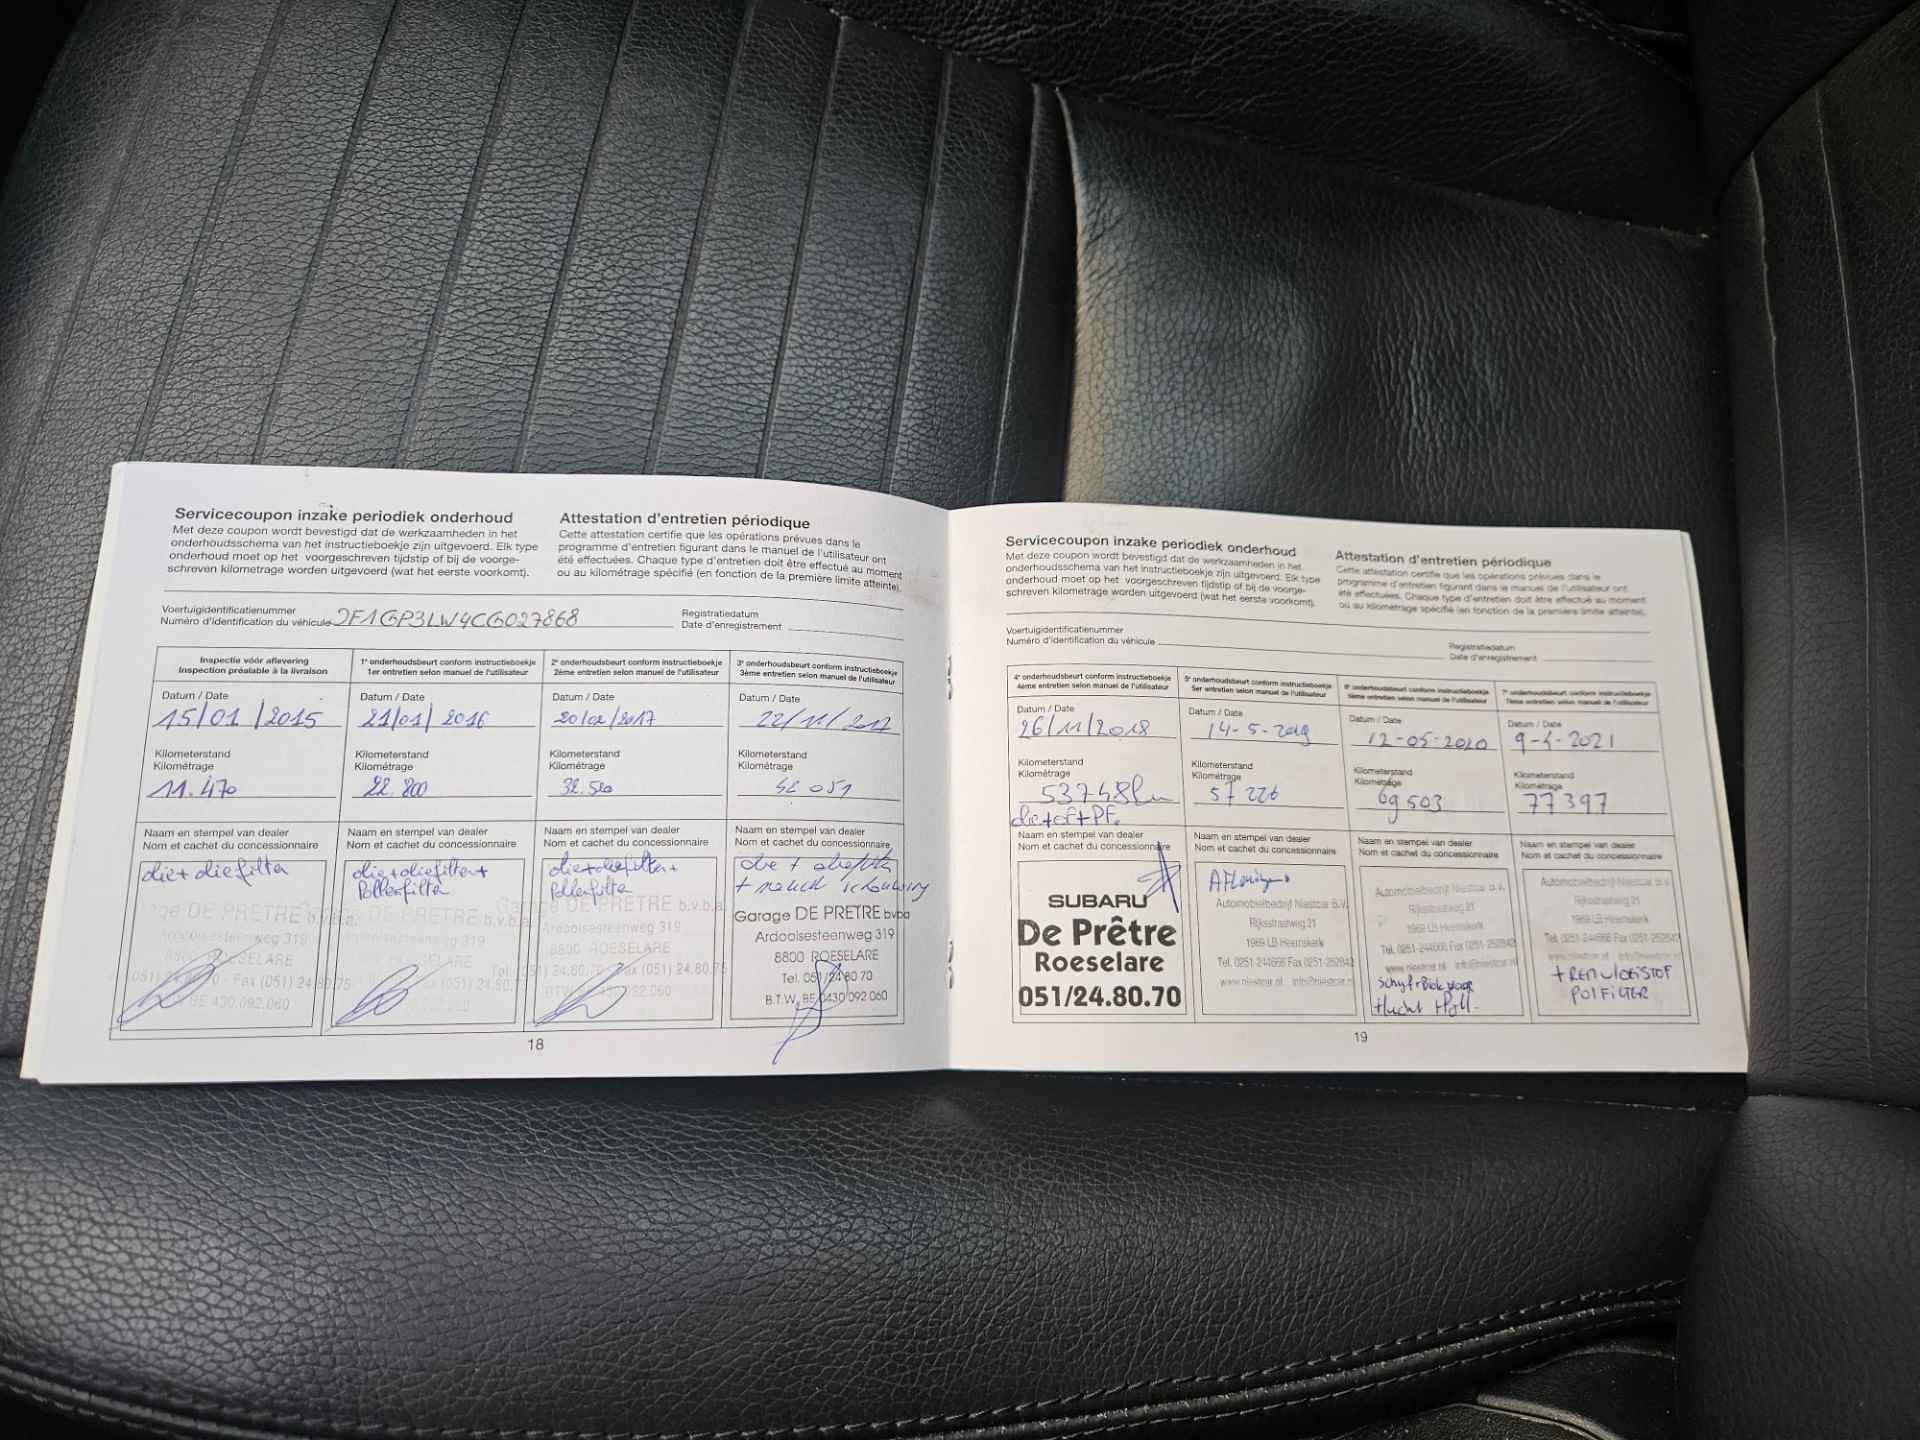 Servicecoupon inzake periodiek onderhoud
Met deze coupon wordt bevestigd dat de werkzaamheden in het
onderhoudsschema van het instructieboekje zijn uitgevoerd. Elk type
onderhoud moet op het voorgeschreven tijdstip of bij de voorge-
schreven kilometrage worden uitgevoerd (wat het eerste voorkomt).
Attestation d'entretien périodique
Cette attestation certifie que les opérations prévues dans le
programme d'entretien figurant dans le manuel de l'utilisateur ont
été effectuées. Chaque type d'entretien doit être effectué au moment
ou au kilométrage spécifié (en fonction de la première limite atteinte).
Voertuigidentificatienummer
Numéro d'identification du véhicule JF1GP3LW4CG027868
Registratiedatum
Date d'enregistrement
Inspectie vóór aflevering
Inspection préalable à la livraison
Datum / Date
15/01/2015
Kilometerstand
Kilométrage
11.470
Naam en stempel van dealer
Nom et cachet du concessionnaire
olie + oliefilter
DE PRETRE b.v.b.a.
Ardooisesteenweg 319
8800 ROESELARE
(051) 24.80.70 - Fax (051) 24.80.75
BE 430.092.060
1e onderhoudsbeurt conform instructieboekje
1er entretien selon manuel de l'utilisateur
Datum / Date
21/01/2016
Kilometerstand
Kilométrage
22.800
Naam en stempel van dealer
Nom et cachet du concessionnaire
olie + oliefilter +
Pollenfilter
DE PRETRE b.v.b.a.
2e onderhoudsbeurt conform instructieboekje
2ème entretien selon manuel de l'utilisateur
Datum / Date
20/02/2017
Kilometerstand
Kilométrage
32.500
Naam en stempel van dealer
Nom et cachet du concessionnaire
olie + oliefilter +
Pollenfilter
DE PRETRE b.v.b.a.
Ardooisesteenweg 319
8800 ROESELARE
Tel. (051) 24.80.70 - Fax (051) 24.80.75
BTW BE 430.092.060
3e onderhoudsbeurt conform instructieboekje
3ème entretien selon manuel de l'utilisateur
Datum / Date
22/11/2017
Kilometerstand
Kilométrage
Naam en stempel van dealer
Nom et cachet du concessionnaire
olie + oliefilter
Garage DE PRETRE bvba
Ardooisesteenweg 319
8800 ROESELARE
Tel. 051/24 80 70
B.T.W. BE 0430 092 060
18
Servicecoupon inzake periodiek onderhoud
Met deze coupon wordt bevestigd dat de werkzaamheden in het
onderhoudsschema van het instructieboekje zijn uitgevoerd. Elk type
onderhoud moet op het voorgeschreven tijdstip of bij de voorge-
schreven kilometrage worden uitgevoerd (wat het eerste voorkomt).
Attestation d'entretien périodique
Cette attestation certifie que les opérations prévues dans le
programme d'entretien figurant dans le manuel de l'utilisateur ont
été effectuées. Chaque type d'entretien doit être effectué au moment
ou au kilométrage spécifié (en fonction de la première limite atteinte).
Voertuigidentificatienummer
Numéro d'identification du véhicule
Registratiedatum
Date d'enregistrement
4e onderhoudsbeurt conform instructieboekje
4ème entretien selon manuel de l'utilisateur
Datum / Date
26/11/2018
Kilometerstand
Kilométrage
53748km
olie+of+PF.
Naam en stempel van dealer
Nom et cachet du concessionnaire
SUBARU
De Prêtre
Roeselare
051/24.80.70
5e onderhoudsbeurt conform instructieboekje
5er entretien selon manuel de l'utilisateur
Datum / Date
14-5-2019
Kilometerstand
Kilométrage
57226
Naam en stempel van dealer
Nom et cachet du concessionnaire
Automobielbedrijf Niestcar B.V.
Rijksstraatweg 21
1969 LB Heemskerk
Tel. 0251-244666 Fax 0251-252843
www.niestcar.nl info@niestcar.nl
6e onderhoudsbeurt conform instructieboekje
6ème entretien selon manuel de l'utilisateur
Datum / Date
12-05-2020
Kilometerstand
Kilométrage
69503
Naam en stempel van dealer
Nom et cachet du concessionnaire
Automobielbedrijf Niestcar B.V.
Rijksstraatweg 21
1969 LB Heemskerk
Tel. 0251-244666 Fax 0251-252843
www.niestcar.nl info@niestcar.nl
7e onderhoudsbeurt conform instructieboekje
7ème entretien selon manuel de l'utilisateur
Datum / Date
9-4-2021
Kilometerstand
Kilométrage
77397
Naam en stempel van dealer
Nom et cachet du concessionnaire
Automobielbedrijf Niestcar B.V.
Rijksstraatweg 21
1969 LB Heemskerk
Tel. 0251-244666 Fax 0251-252843
www.niestcar.nl info@niestcar.nl
+ REMVLOEISTOF
POLFILTER
19